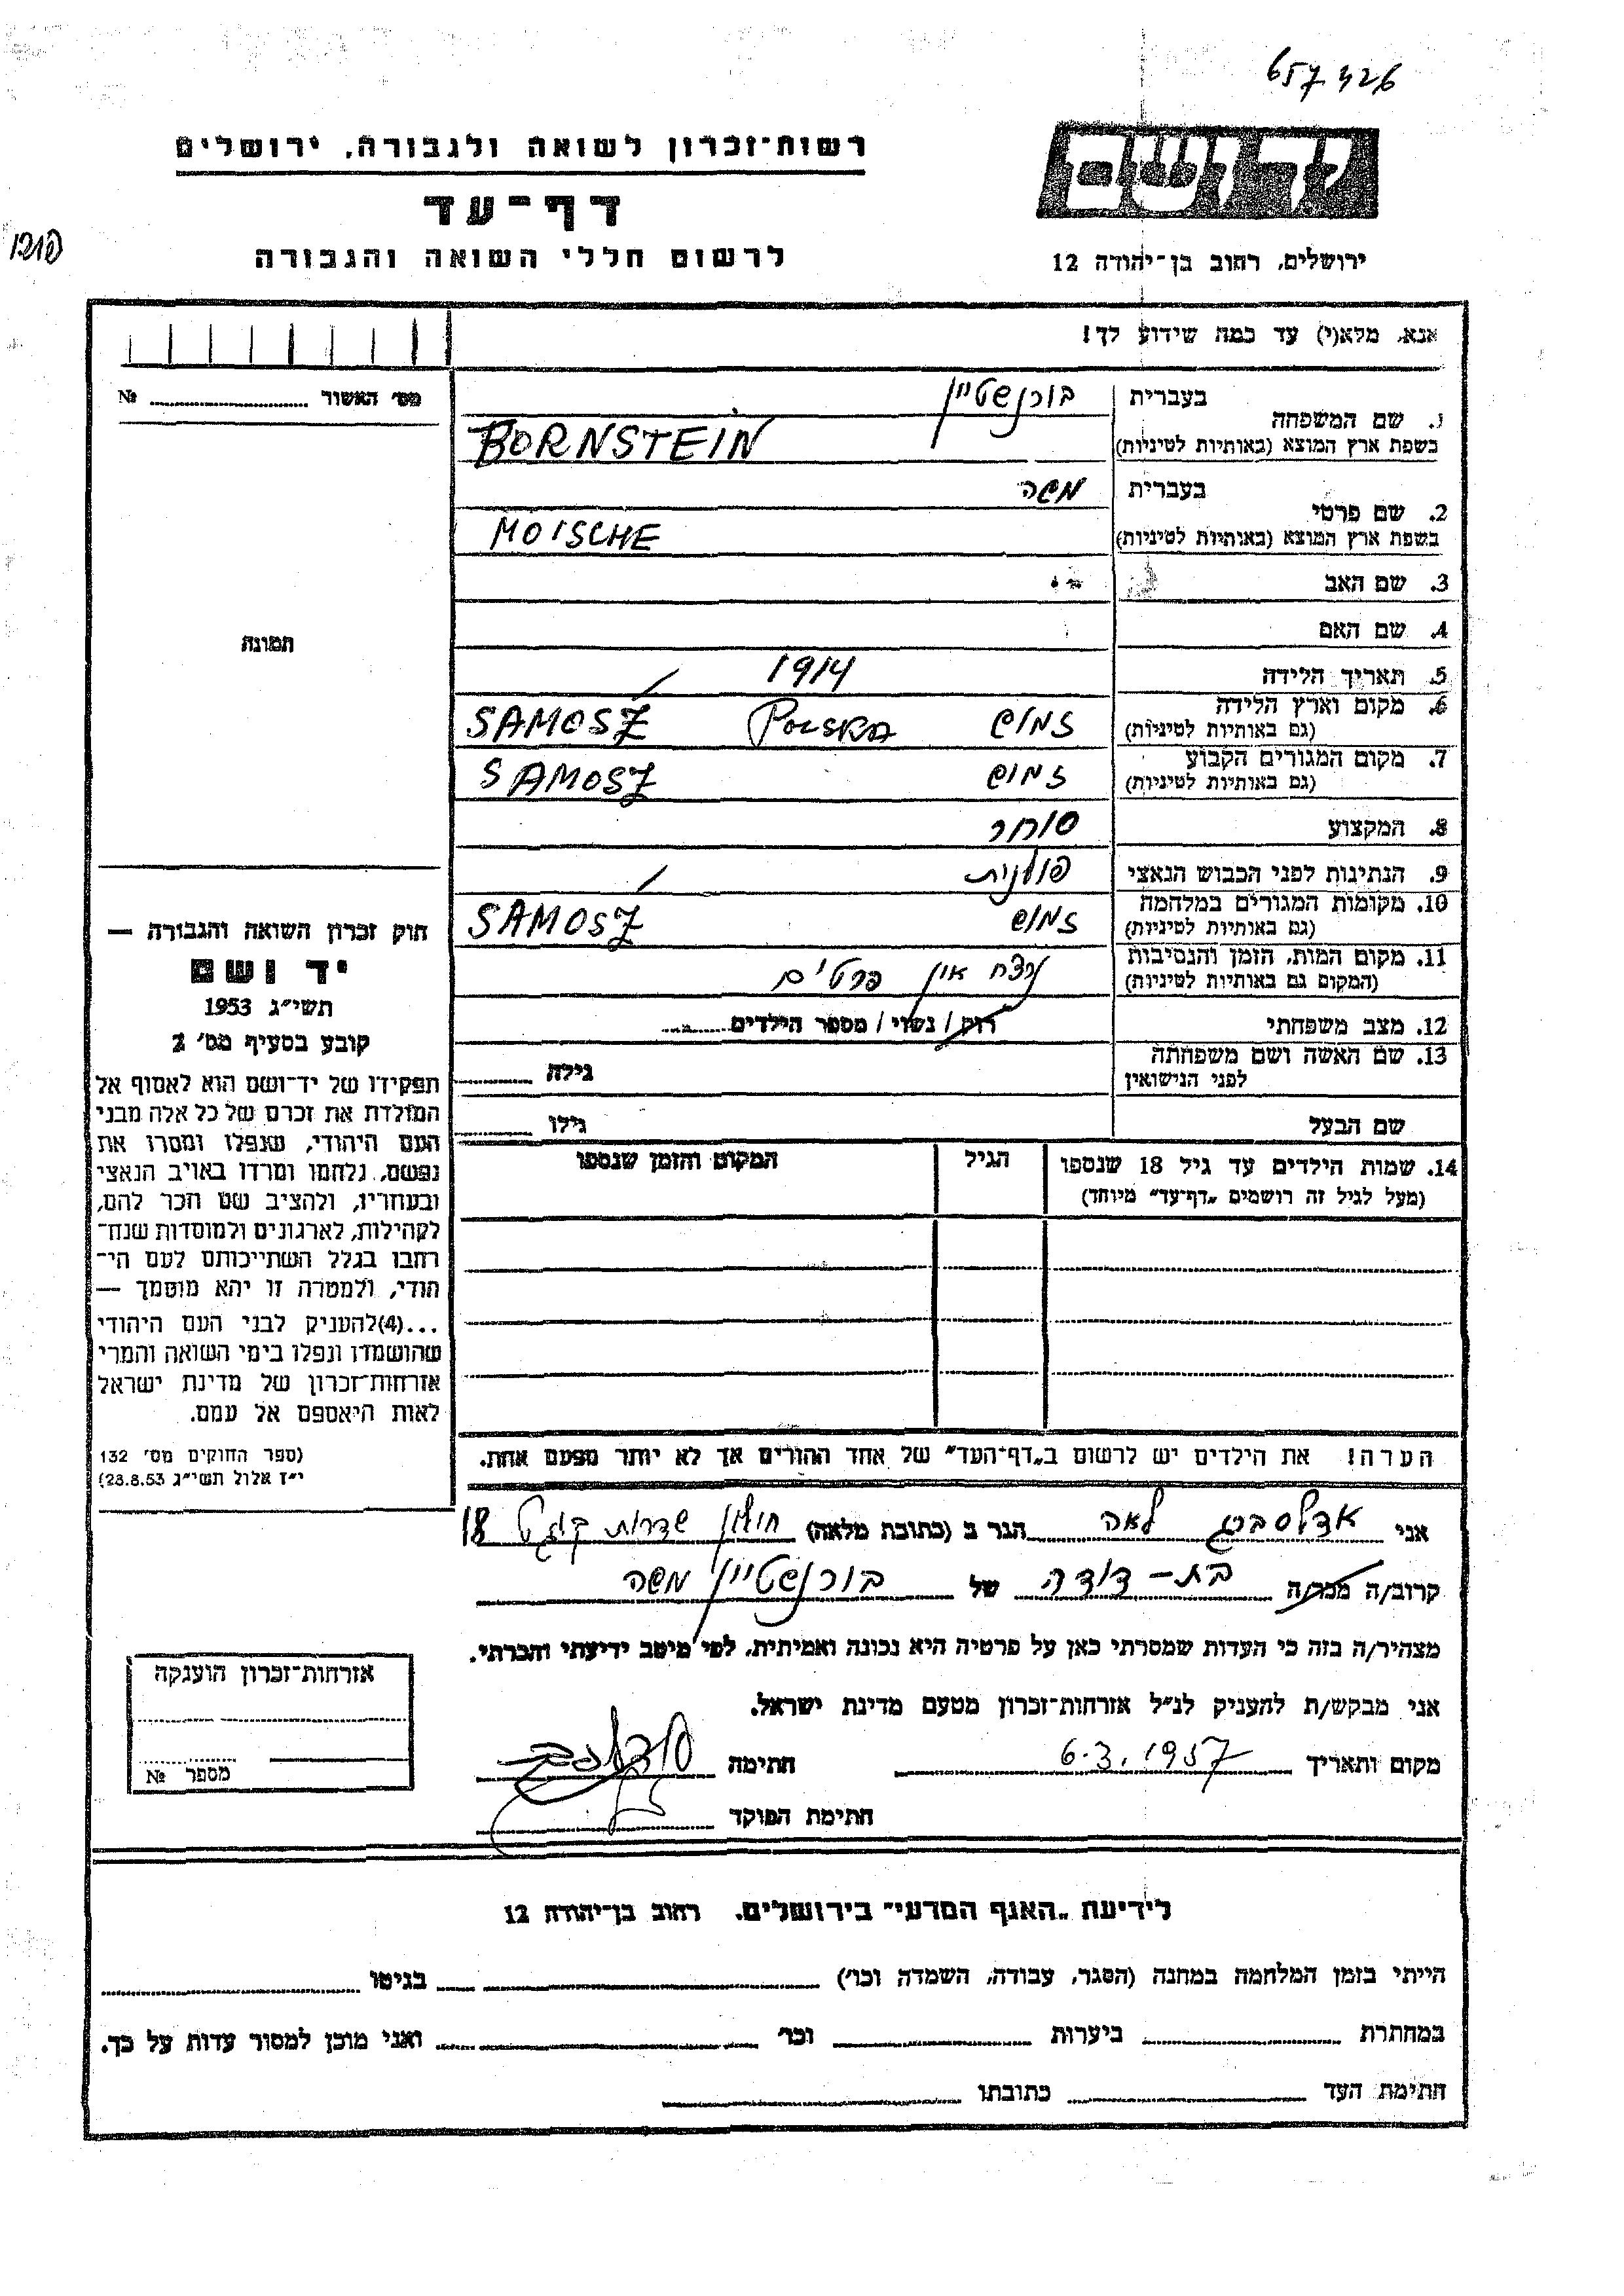 657426
רשות־זכרון לשואה ולגבורה, ירושלים
יד ושם
דף־עד
לרשום חללי השואה והגבורה
ירושלים, רחוב בן־יהודה 12
אנא, מלא(י) עד כמה שידוע לך!
מס׳ האשור № 
1. שם המשפחה
בעברית בורנשטיין
בשפת ארץ המוצא (באותיות לטיניות) BORNSTEIN
2. שם פרטי
בעברית משה
בשפת ארץ המוצא (באותיות לטיניות) MOISCHE
3. שם האב
4. שם האם
תמונה
5. תאריך הלידה 1914
6. מקום וארץ הלידה
(גם באותיות לטיניות) זמוש POLSKA SAMOSZ
7. מקום המגורים הקבוע
(גם באותיות לטיניות) זמוש SAMOSZ
8. המקצוע סוחר
9. הנתינות לפני הכבוש הנאצי פולנית
10. מקומות המגורים במלחמה
(גם באותיות לטיניות) זמוש SAMOSZ
11. מקום המות, הזמן והנסיבות
(המקום גם באותיות לטיניות) נרצח אין פרטים
12. מצב משפחתי רווק / נשוי / מספר הילדים
13. שם האשה ושם משפחתה
לפני הנישואין גילה
שם הבעל גילו
14. שמות הילדים עד גיל 18 שנספו הגיל המקום והזמן שנספו
(מעל לגיל זה רושמים „דף־עד״ מיוחד)
חוק זכרון השואה והגבורה —
יד ושם
תשי״ג 1953
קובע בסעיף מס׳ 2
תפקידו של יד־ושם הוא לאסוף אל
המולדת את זכרם של כל אלה מבני
העם היהודי, שנפלו ומסרו את
נפשם, נלחמו ומרדו באויב הנאצי
ובעוזריו, ולהציב שם וזכר להם,
לקהילות, לארגונים ולמוסדות שנח־
רבו בגלל השתייכותם לעם הי־
הודי, ולמטרה זו יהא מוסמך —
...(4)להעניק לבני העם היהודי
שהושמדו ונפלו בימי השואה והמרי
אזרחות־זכרון של מדינת ישראל
לאות היאספם אל עמם.
(ספר החוקים מס׳ 132
י״ז אלול תשי״ג 28.8.53)
הערה! את הילדים יש לרשום ב„דף־העד״ של אחד ההורים אך לא יותר מפעם אחת.
אני אדלסברג לאה הגר ב (כתובת מלאה) חולון שדרות קוגל 18
קרוב/ה מכר/ה בת-דודה של בורנשטיין משה
מצהיר/ה בזה כי העדות שמסרתי כאן על פרטיה היא נכונה ואמיתית, לפי מיטב ידיעתי והכרתי.
אני מבקש/ת להעניק לנ״ל אזרחות־זכרון מטעם מדינת ישראל.
מקום ותאריך 6.3.1957 חתימה
חתימת הפוקד
אזרחות־זכרון הוענקה
מספר №
לידיעת „האגף המדעי״ בירושלים, רחוב בן־יהודה 12
הייתי בזמן המלחמה במחנה (הסגר, עבודה, השמדה וכו׳) בגיטו
במחתרת ביערות וכו׳ ואני מוכן למסור עדות על כך.
חתימת העד כתובתו